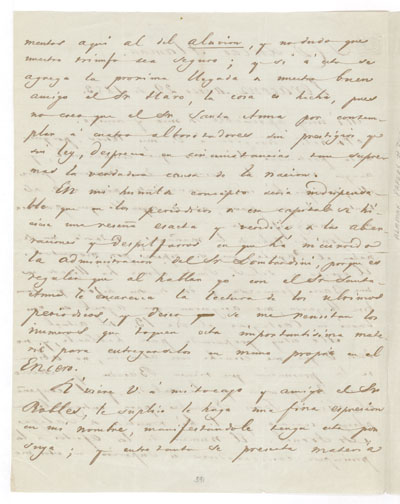 mentos aquí al del alacion, y no dudo que
nuestro triunfo sea seguro; y si á esto se
agrega la proxima llegada a nuestro buen
amigo el Sr Haro, la cosa es hecha, pues
no creo que el Sr Santa Anna por contem-
plar á cuatro alborotadores sin prestigio y
sin ley, desprecie en circunstancias tan supre-
mas la verdadera causa de la nacion.
En mi humilde concepto seria indispensa-
ble que en los periódicos de esa capital se hi-
ciese una reseña esacta y veridica de las aber-
raciones y despilfarros en que há incurrido
la administracion del Sr Lombardini, porque es
regular que al hablar yo con el Sr Santa
Anna le encarezca la lectura de los ultimos
periódicos, y deseo que se me remitan los
numeros que toquen esta importantisima mate-
ria para entregarselos en mano propia en el
Encero.
Si viere V á mi tocayo y amigo el Sr
Robles, le suplico le haga una fina espresion
en mi nombre, manifestandole tenga esta por
suya; y entretanto se presenta materia